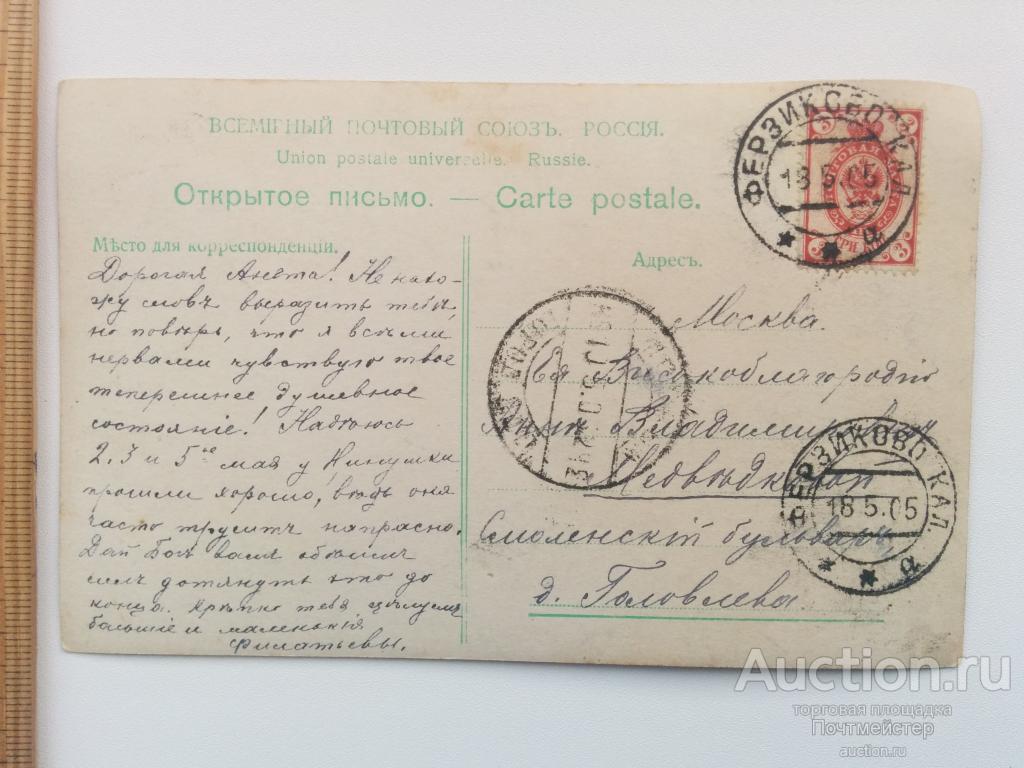 ВСЕМІРНЫЙ ПОЧТОВЫЙ СОЮЗЪ. РОССІЯ.
Union postale universelle. Russie.
Открытое письмо. — Carte postale.
Мѣсто для корреспонденціи.
Дорогая Анета! Не нахо-
жу словъ выразить тебѣ,
но повѣрь, что я всѣми
нервами чувствую твое
теперешнее душевное
состояніе! Надѣюсь
2, 3 и 5ое мая у Нинушки
прошли хорошо, вѣдь она
часто труситъ напрасно.
Дай Богъ вамъ обѣимъ
дотянуть это до
конца. Крѣпко тебя цѣлуемъ
большіе и маленькія
Филатьевы.
Адресъ.
Москва.
Ея Высокоблагородію
Аннѣ Владиміровнѣ
Медвѣдковой
Смоленскій бульваръ,
д. Головлева
ФЕРЗИКОВО КАЛ.
18 5 05
3
3
ТРИ
3
ФЕРЗИКОВО КАЛ.
18 5. 05
Auction.ru
торговая площадка
Почтмейстер
auction.ru